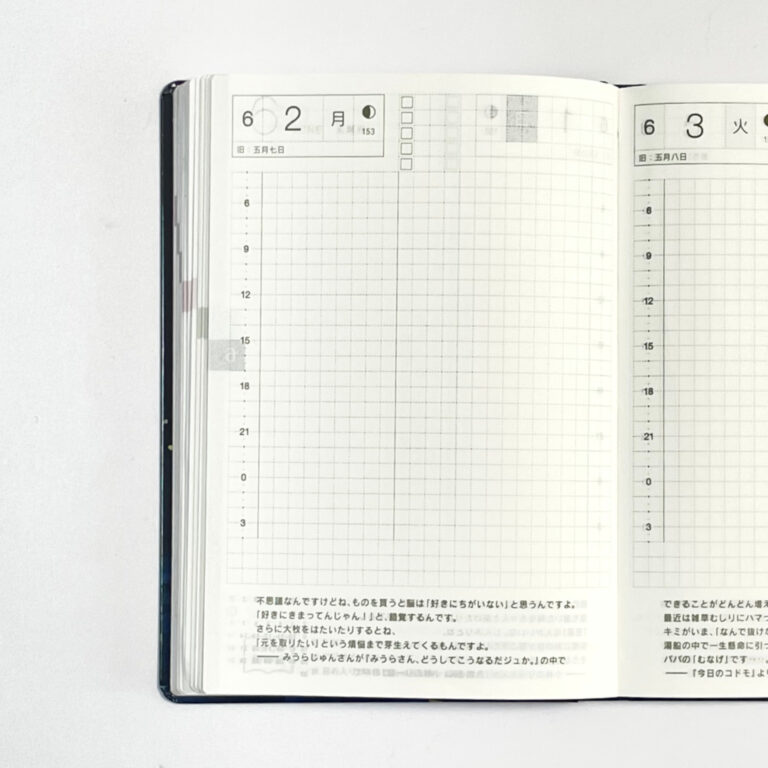 6 2 月
153
旧：五月七日
6
9
12
15
6
18
21
0
3
不思議なんですけどね、ものを買うと脳は「好きにちがいない」と思うんですよ。
「好きにきまってんじゃん！」と、錯覚するんです。
さらに大枚をはたいたりするとね、
「元を取りたい」という煩悩まで芽生えてくるもんですよ。
── みうらじゅんさんが『みうらさん、どうしてこうなるだジュか。』の中で
6 3 火
旧：五月八日
6
9
12
15
18
21
0
3
できることがどんどん増え
最近は雑草むしりにハマっ
キミがいま、「なんで抜けな
湯船の中で一生懸命に引っ
パパの「むなげ」です…。
── 『今日のコドモ』より